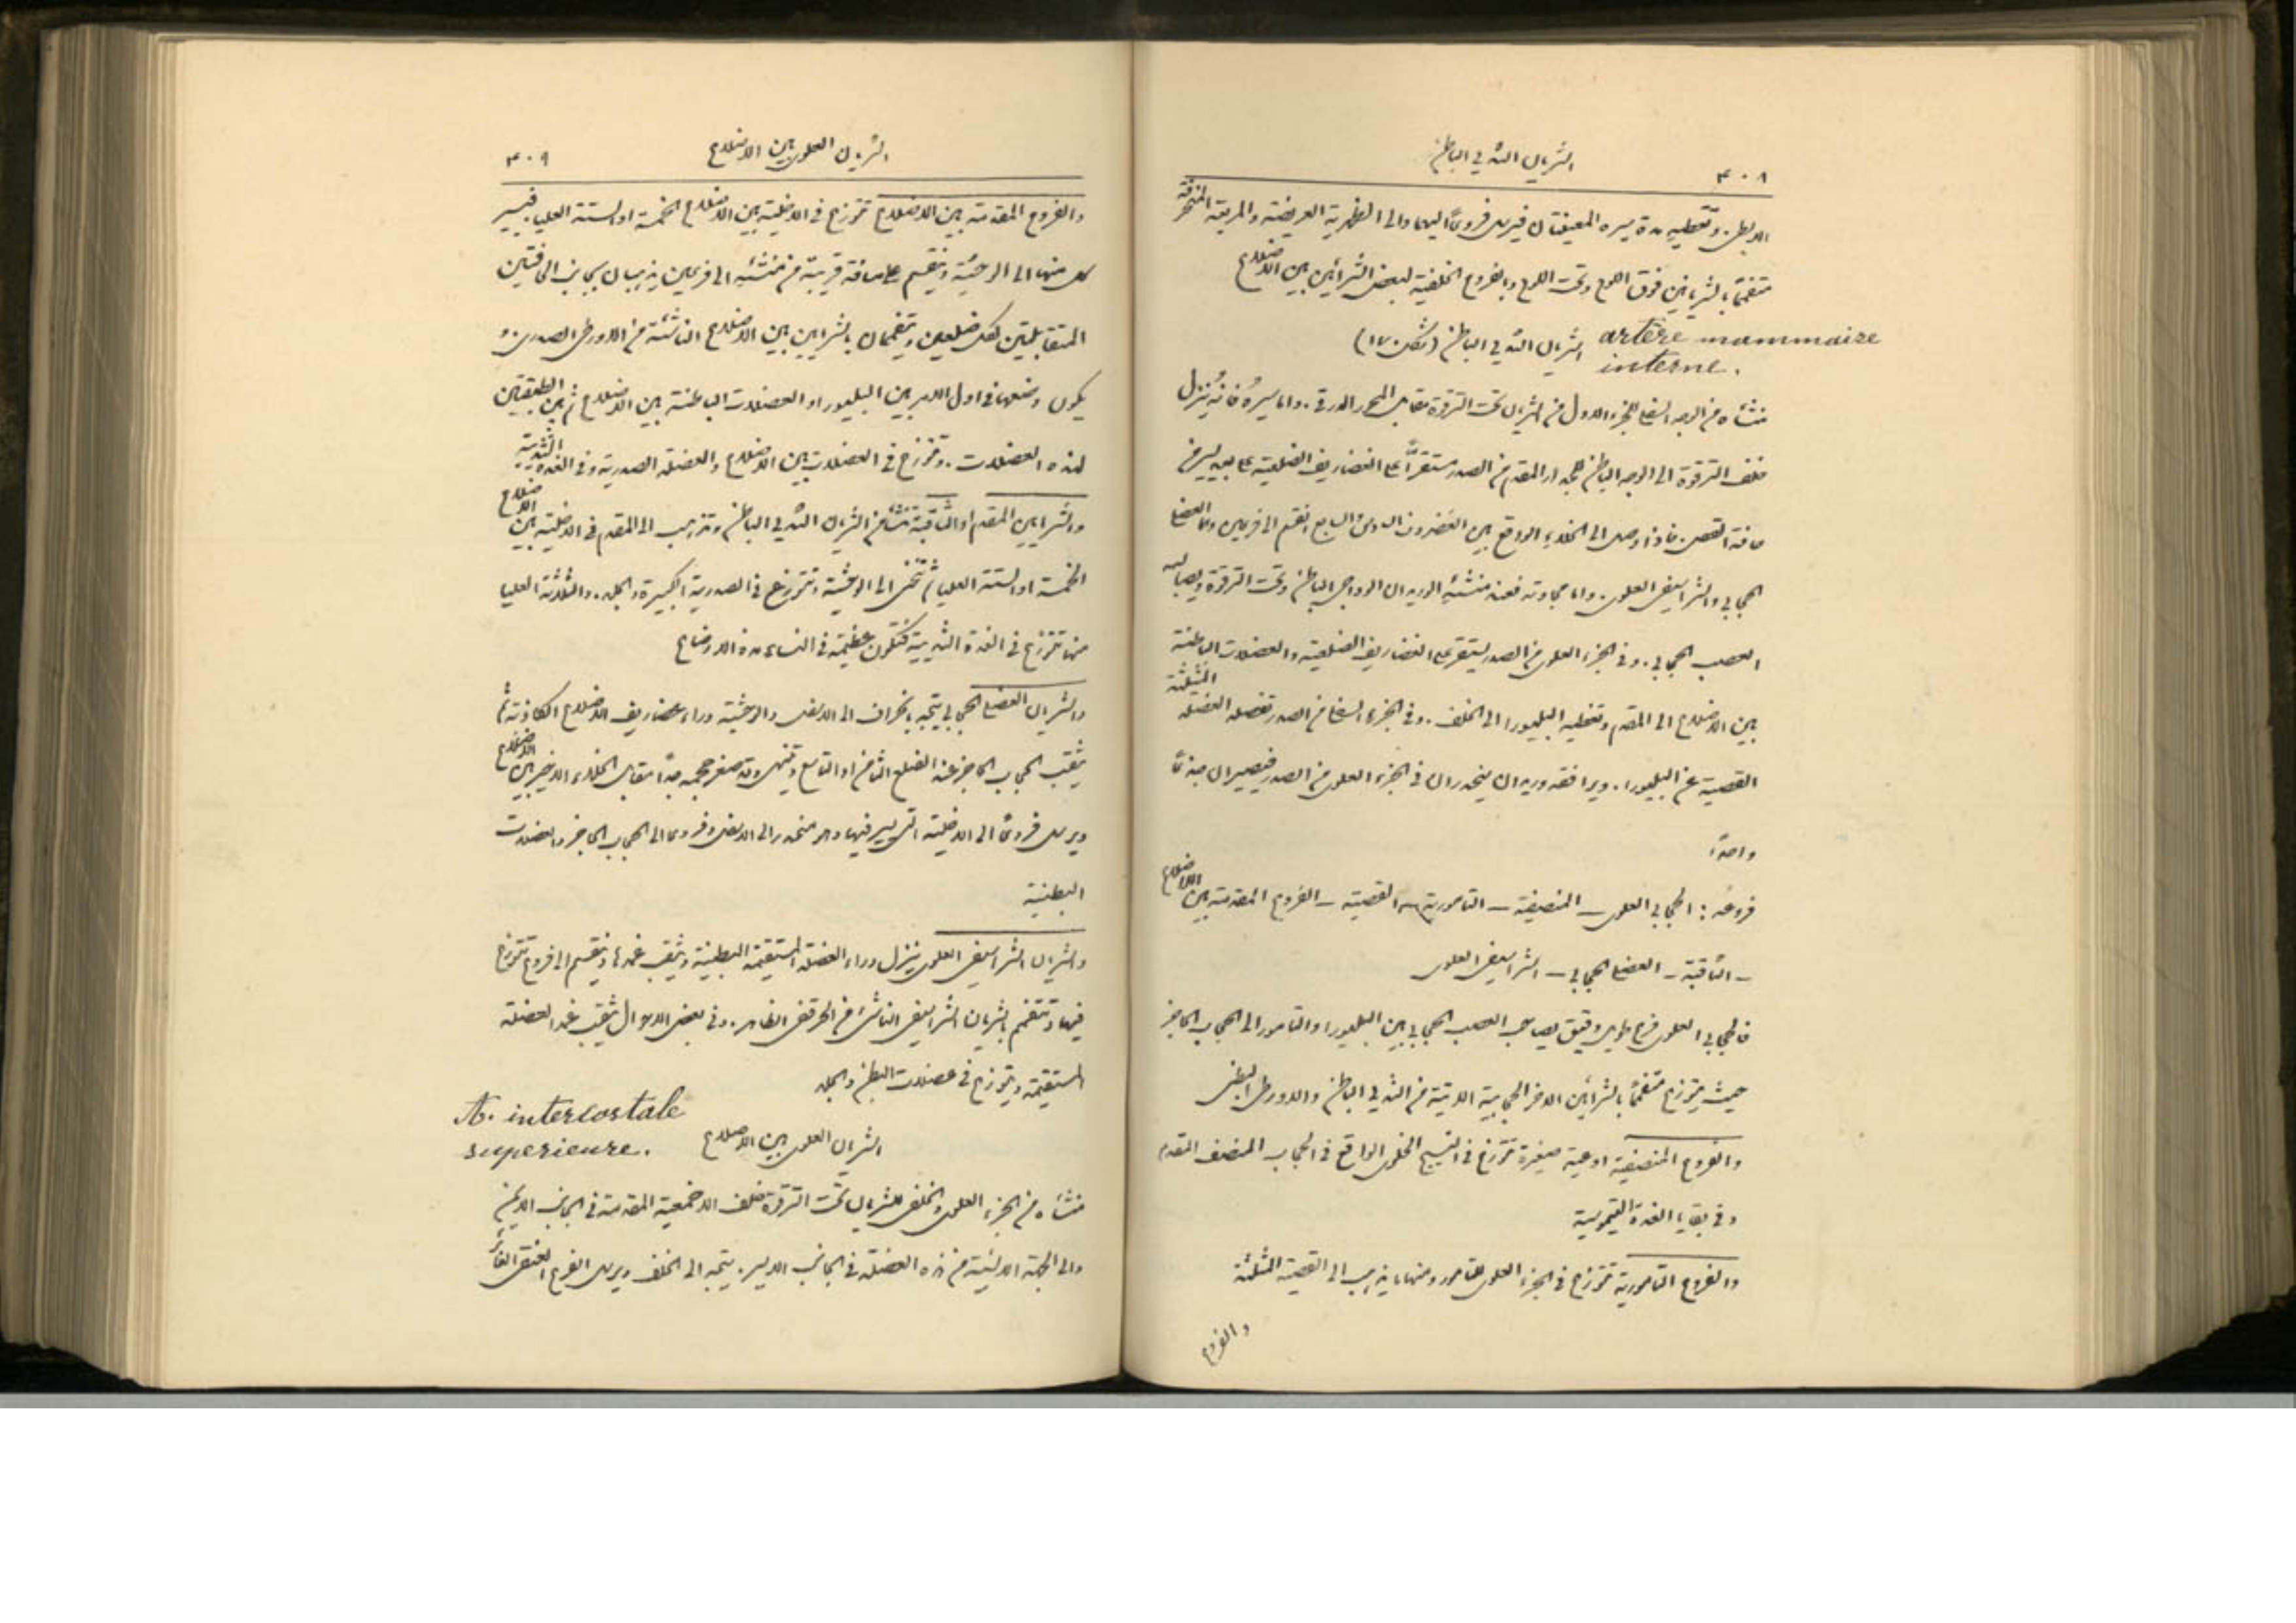 ٤٠٨ الشريان الثديي الباطن
الابطي. وتغطيه مدة مسيره المعينيتان فيرسل فروعاً اليهما والى الظهرية العريضة والمربعة المنحرفة
متفمماً بالشريانين فوق اللوح وتحت اللوح وبالفروع الخلفية لبعض الشرايين بين الاضلاع
الشريان الثديي الباطن (شكل ١٧٠) artère mammaire
interne.
منشأه من الوجه السفلي للجزء الاول من الشريان تحت الترقوة مقابل المحور الدرقي. واما مسيره فانه ينزل
خلف الترقوة الى الوجه الباطن للجدار المقدم من الصدر مستقراً على الغضاريف الضلعية على بعد يسير من
حافة القص. فاذا وصل الى الخلاء الواقع بين الغضروف السادس والسابع انقسم الى فرعين وهما العضلي
الحجابي والشراسيفي العلوي. واما مجاورته فعند منشئه الوريد الوداجي الباطن وتحت الترقوة ويصالبه
العصب الحجابي. وفي الجزء العلوي من الصدر يستقر على الغضاريف الضلعية والعضلات الباطنة
بين الاضلاع الى المقدم وتغطيه البليورا الى الخلف. وفي الجزء السفلي من الصدر تفصله العضلة المثلثة
القصية عن البليورا. ويرافقه وريدان ينحدران في الجزء العلوي من الصدر فيصيران جذعاً
واحداً
فروعه: الحجابي العلوي – المنصفية – التامورية – القصية – الفروع المقدمة بين الاضلاع
– الثاقبة – العضلي الحجابي – الشراسيفي العلوي
فالحجابي العلوي فرع طويل دقيق يصاحب العصب الحجابي بين البليورا والتامور الى الحجاب الحاجز
حيث يتوزع متفمماً بالشرايين الاخر الحجابية الآتية من الثديي الباطن والاورطى البطني
والفروع المنصفية اوعية صغيرة تتوزع في النسيج الخلوي الواقع في الحجاب المنصف المقدم
وفي بقايا الغدة التيموسية
والفروع التامورية تتوزع في الجزء العلوي للتامور ومنها ما يذهب الى القصية المثلثة
والفروع
الشريان العلوي بين الاضلاع ٤٠٩
والفروع المقدمة بين الاضلاع تتوزع في الاخلية بين الاضلاع الخمسة او الستة العليا فيسير
كل منها الى الوحشية وينقسم على مسافة قريبة من منشئه الى فرعين يذهبان بجانب الحافتين
المتقابلتين لكل ضلعين ويتفممان بالشرايين بين الاضلاع الناشئة من الاورطى الصدري و
يكون وضعها في اول الامر بين البليورا والعضلات الباطنة بين الاضلاع ثم بين الطبقتين
لهذه العضلات. وتتوزع في العضلات بين الاضلاع والعضلة الصدرية وفي الغدة الثديية
والشرايين المقدم او الثاقبة تنشأ من الشريان الثديي الباطن وتذهب الى المقدم في الاخلية بين الاضلاع
الخمسة او الستة العليا ثم تنحني الى الوحشية وتتوزع في الصدرية الكبيرة والجلد. والثلاثة العليا
منها تتوزع في الغدة الثديية فتكون عظيمة في النساء مدة الارضاع
والشريان العضلي الحجابي يتجه بانحراف الى الاسفل والوحشية وراء غضاريف الاضلاع الكاذبة ثم
يثقب الحجاب الحاجز عند الضلع الثامن او التاسع وينتهي وقد صغر حجمه جداً مقابل الخلاء الاخير بين الاضلاع
ويرسل فروعاً الى الاخلية التي يسير فيها وهو منحدر الى الاسفل وفروعا الى الحجاب الحاجز والعضلات
البطنية
والشريان الشراسيفي العلوي ينزل وراء العضلة المستقيمة البطنية ويثقب غمدها وينقسم الى فروع تتوزع
فيها وتتفمم بالشريان الشراسيفي الناشئ من الحرقفي الظاهر. وفي بعض الاحوال يثقب غمد العضلة
المستقيمة ويتوزع في عضلات البطن والجلد
الشريان العلوي بين الاضلاع A. intercostale
superieure.
منشأه من الجزء العلوي والخلفي للشريان تحت الترقوة خلف الاخمعية المقدمة في الجانب الايمن
والى الجهة الانسية من هذه العضلة في الجانب الايسر. يتجه الى الخلف ويرسل الفرع العنقي الغائر